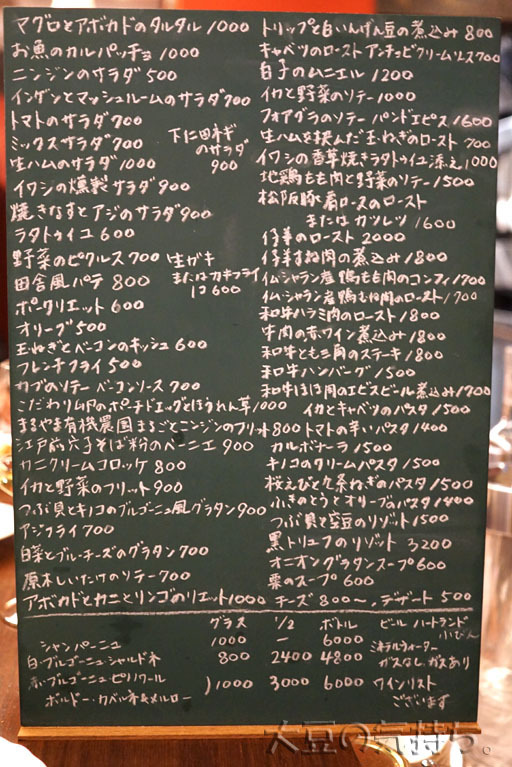 マグロとアボカドのタルタル 1000
お魚のカルパッチョ 1000
ニンジンのサラダ 500
インゲンとマッシュルームのサラダ 700
トマトのサラダ 700
ミックスサラダ 700
生ハムのサラダ 1000
下仁田ネギ
のサラダ
900
イワシの燻製サラダ 900
焼きなすとアジのサラダ 900
ラタトゥイユ 600
野菜のピクルス 700
田舎風パテ 800
生ガキ
またはカキフライ
1コ600
ポークリエット 600
オリーブ 500
玉ねぎとベーコンのキッシュ 600
フレンチフライ 500
カブのソテー ベーコンソース 700
こだわり山卵のポーチドエッグとほうれん草 1000
まるやま有機農園まるごとニンジンのフリット 800
江戸前穴子そば粉のベーニエ 900
カニクリームコロッケ 800
イカと野菜のフリット 900
つぶ貝とキノコのブルゴーニュ風グラタン 900
アジフライ 700
白菜とブルーチーズのグラタン 700
原木しいたけのソテー 700
アボカドとカニとリンゴのリエット 1000
トリップと白いんげん豆の煮込み 800
キャベツのロースト アンチョビクリームソース 700
白子のムニエル 1200
イカと野菜のソテー 1000
フォアグラのソテー パンドエピス 1600
生ハムを挟んだ玉ねぎのロースト 700
イワシの香草焼きラタトゥイユ添え 1000
地鶏もも肉と野菜のソテー 1500
松阪豚肩ロースのロースト
または カツレツ 1600
仔羊のロースト 2000
仔羊すね肉の煮込み 1800
イム・シャラン産鴨もも肉のコンフィ 1700
イム・シャラン産鴨むね肉のロースト 1700
和牛ハラミ肉のロースト 1800
牛肉の赤ワイン煮込み 1800
和牛とも三角のステーキ 1800
和牛ハンバーグ 1500
和牛ほほ肉のエビスビール煮込み 1700
イカとキャベツのパスタ 1500
トマトの辛いパスタ 1400
カルボナーラ 1500
キノコのクリームパスタ 1500
桜えびと九条ねぎのパスタ 1500
ふきのとうとオリーブのパスタ 1400
つぶ貝と空豆のリゾット 1500
黒トリュフのリゾット 3200
オニオングラタンスープ 600
栗のスープ 600
チーズ 800〜, デザート 500
グラス 1/2 ボトル
シャンパーニュ 1000 — 6000
白・ブルゴーニュ・シャルドネ 800 2400 4800
赤・ブルゴーニュ・ピノノワール
ボルドー・カベルネ&メルロー ) 1000 3000 6000
ビール ハートランド
小びん
ミネラルウォーター
ガスなし ガスあり
ワインリスト
ございます
大豆の気持ち。